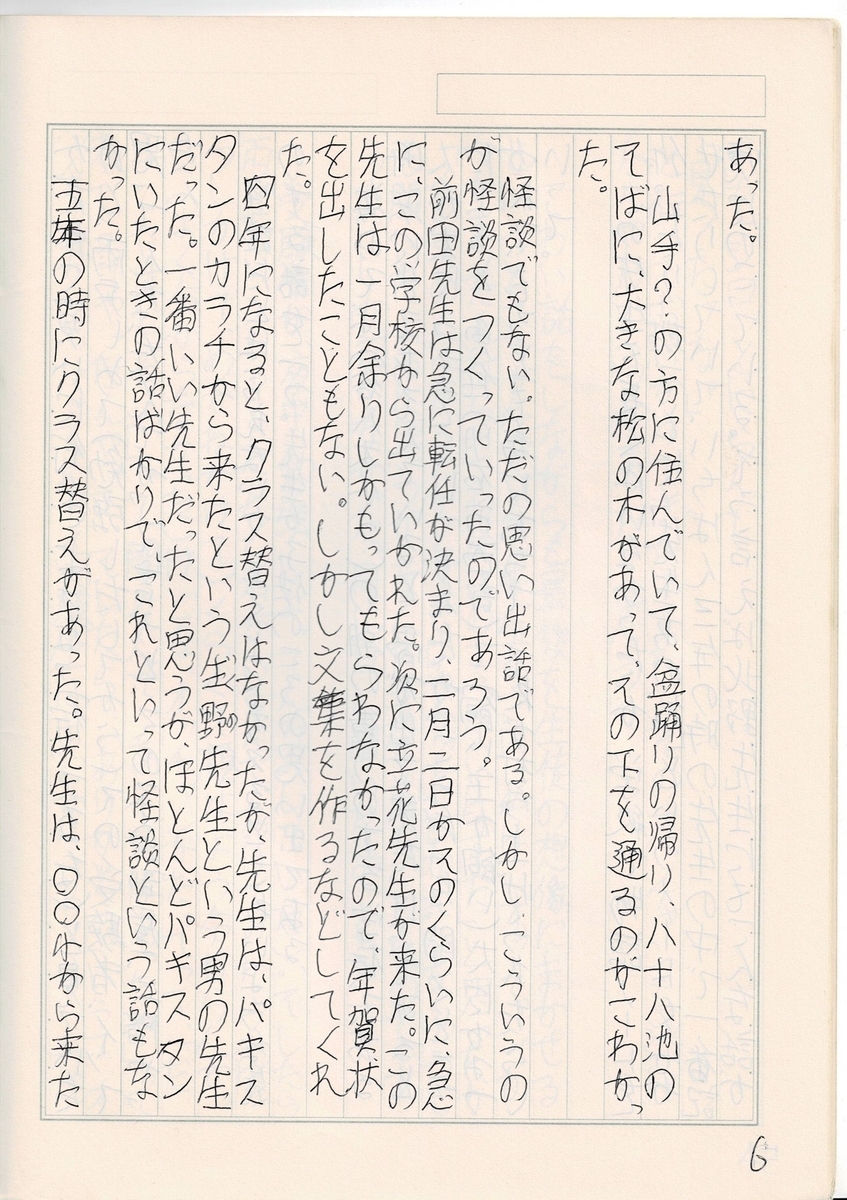 あった。
山手?の方に住んでいて、盆踊りの帰り、八十八池の
そばに、大きな松の木があって、その下を通るのがこわかっ
た。
怪談でもない。ただの思い出話である。しかし、こういうの
が怪談をつくっていったのであろう。
前田先生は急に転任が決まり、二月二日かそのくらいに、急
に、この学校から出ていかれた。次に立花先生が来た。この
先生は一月余りしかもってもらわなかったので、年賀状
を出したこともない。しかし文集を作るなどしてくれ
た。
四年になると、クラス替えはなかったが、先生は、パキス
タンのカラチから来たという生野先生という男の先生
だった。一番いい先生だったと思うが、ほとんどパキスタン
にいたときの話ばかりで、これといって怪談という話もな
かった。
五年の時にクラス替えがあった。先生は、〇〇小から来た
6